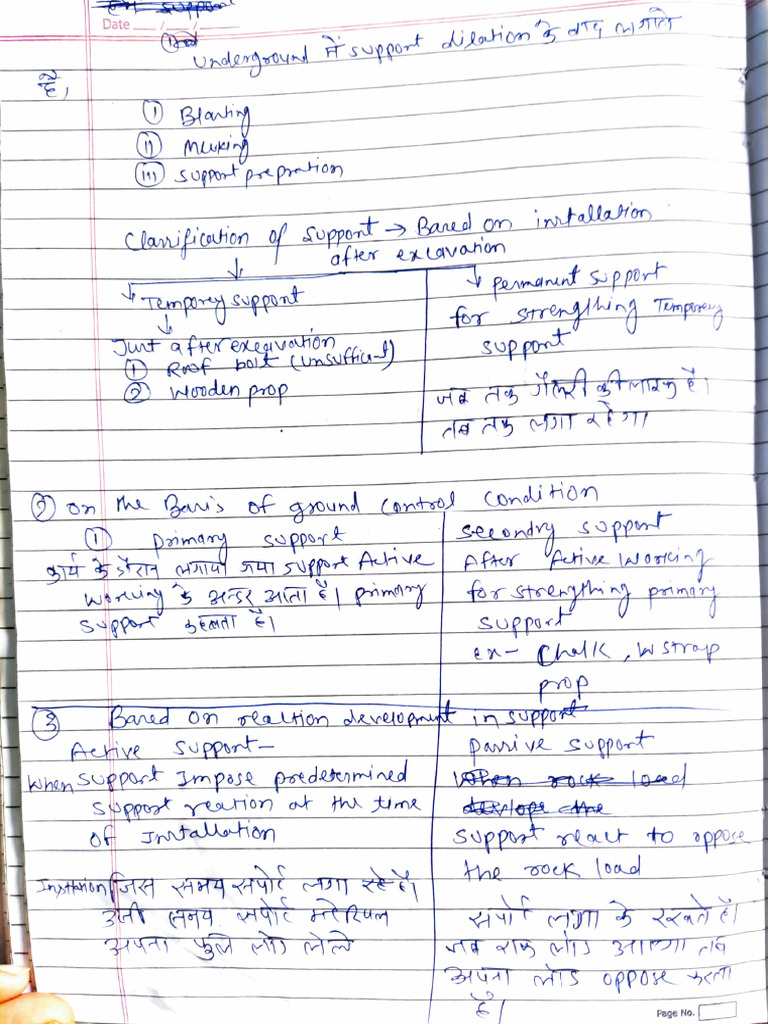 Date __/__/__
Underground में support dilation के बाद लगाते
है।
i Blasting
ii Mucking
iii Support prepration
Classification of support → Based on installation
after excavation
Temporey support
Just after excavation
① Roof bolt (unsufficient)
② Wooden prop
permanent support
for strengthing Temporary
support
जब तक गैलरी की लाइफ है।
तब तक लगा रहेगा
② on the Basis of ground control condition
① primary support
कार्य के दौरान लगाया गया support Active
working के अन्डर आता है। primary
support कहलाता है।
secondry support
After Active working
for strengthing primary
support
ex- Chalk, W strap
prop
③ Based on realtion development in support
Active support-
When support Impose predetermined
support reation at the time
of Installation
जिस समय सपोर्ट लगा रहे है।
उसी समय सपोर्ट मटेरियल
अपना फुल लोड लेले
passive support
When rock load
develope the
support react to oppose
the rock load
सपोर्ट लगा के रखते है।
जब राक लोड आएगा तब
अपना लोड oppose करता
है।
Page No.